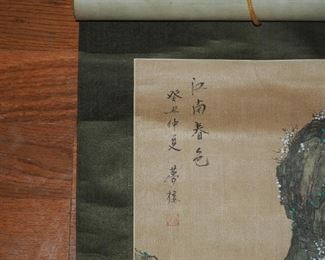 江南春色
癸丑仲夏 夢樓